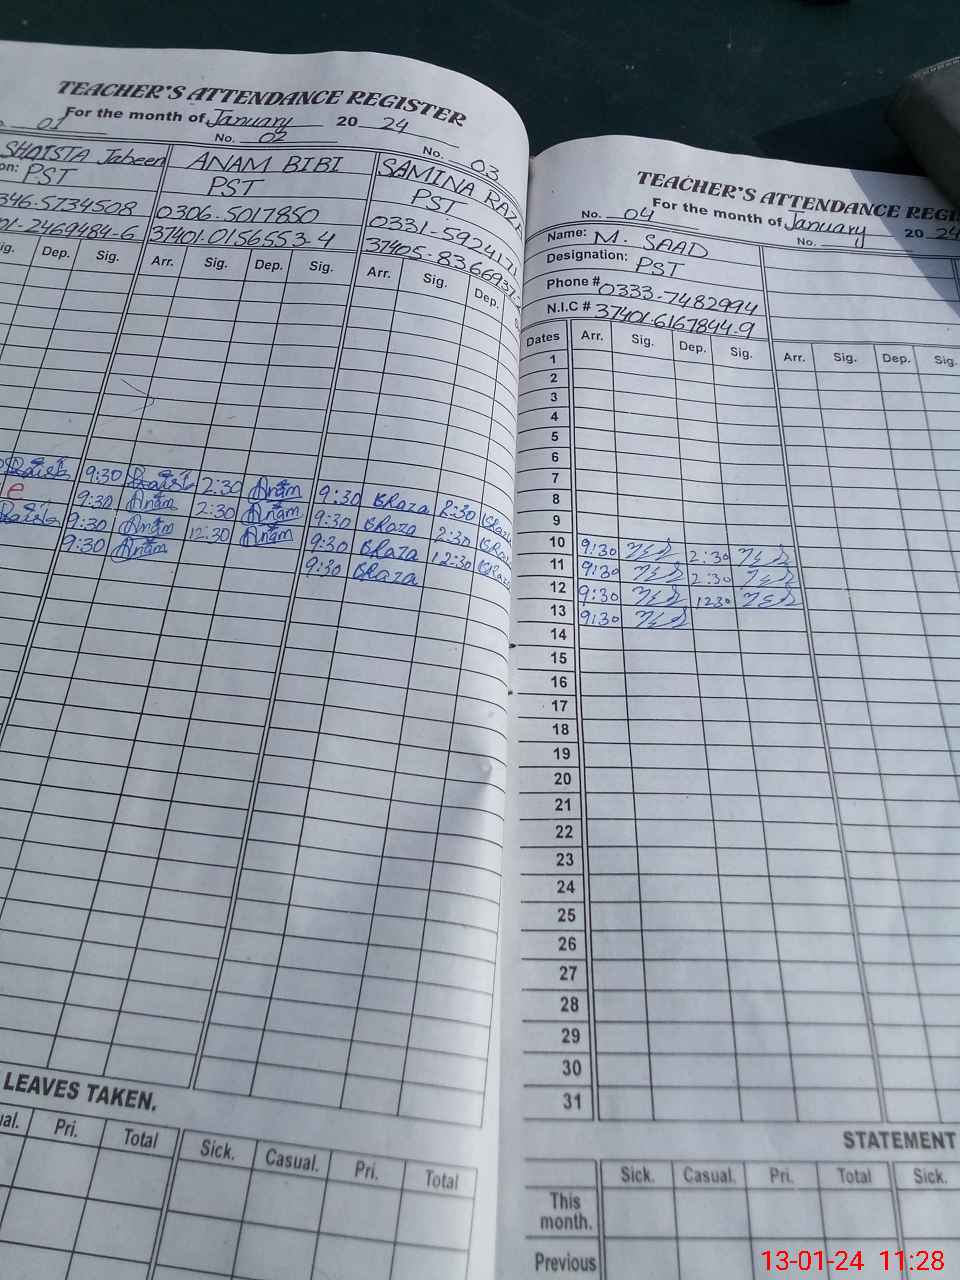 TEACHER'S ATTENDANCE REGISTER
For the month of January 2024
01 No. 02 No. 03
SHAISTA Jabeen ANAM BIBI SAMINA RAZA
PST PST PST
346-5734508 0306-5017850 0331-5924171
01-2469484-6 37401-0156553-4 37405-8366937-
Dep. Sig. Arr. Sig. Dep. Sig. Arr. Sig. Dep.
9:30 2:30 Anam 9:30 SRaza 2:30
e 9:30 Anam 2:30 Anam 9:30 SRaza 2:30
9:30 Anam 12:30 Anam 9:30 SRaza 12:30
9:30 Anam 9:30 SRaza
LEAVES TAKEN.
Pri. Total Sick. Casual. Pri. Total
TEACHER'S ATTENDANCE
For the month of January 2024
No. 04 No.
Name: M. SAAD
Designation: PST
Phone # 0333-7482994
N.I.C # 37401-6167844-9
Dates Arr. Sig. Dep. Sig. Arr. Sig. Dep. Sig.
1
2
3
4
5
6
7
8
9
10 9:30 2:30
11 9:30 2:30
12 9:30 1230
13 9:30
14
15
16
17
18
19
20
21
22
23
24
25
26
27
28
29
30
31
STATEMENT
Sick. Casual. Pri. Total Sick.
This month.
Previous
13-01-24 11:28